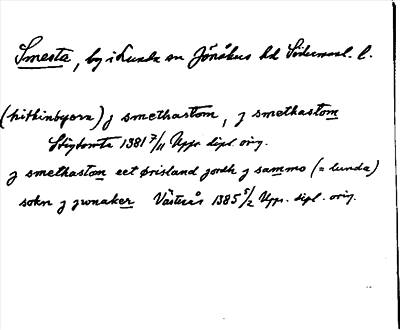 Smesta, by i Lunda sn Jönåkers hd Södermanl. l.
(hithinbyerræ) j smethastom, j smethastom
Stigtomta 1381 7/11 Upps. dipl. orig.
j smethastom eet örisland jordh j sammo (= lunda)
sokn j jwnaker Västerås 1385 5/2 Upps. dipl. orig.